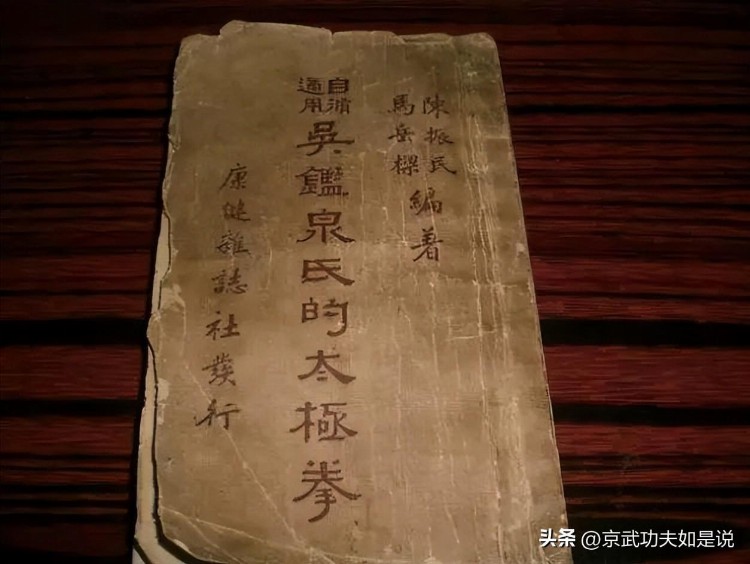 陳振民
馬岳樑
編著
自脩
適用
吳鑑泉氏的太極拳
康健雜誌社發行
头条 @京武功夫如是说